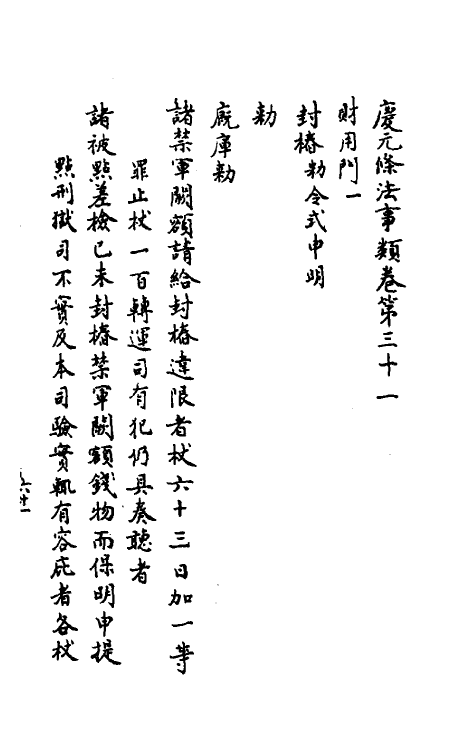 慶元條法事類卷第三十一
財用門一
封樁勅令式申明
勅
廐庫勅
諸禁軍闕額請給封樁違限者杖六十三日加一等
罪止杖一百轉運司有犯仍具奏聽者
諸被點差檢已未封樁禁軍闕額錢物而保明申提
點刑獄司不實及本司驗實輒有容庇者各杖